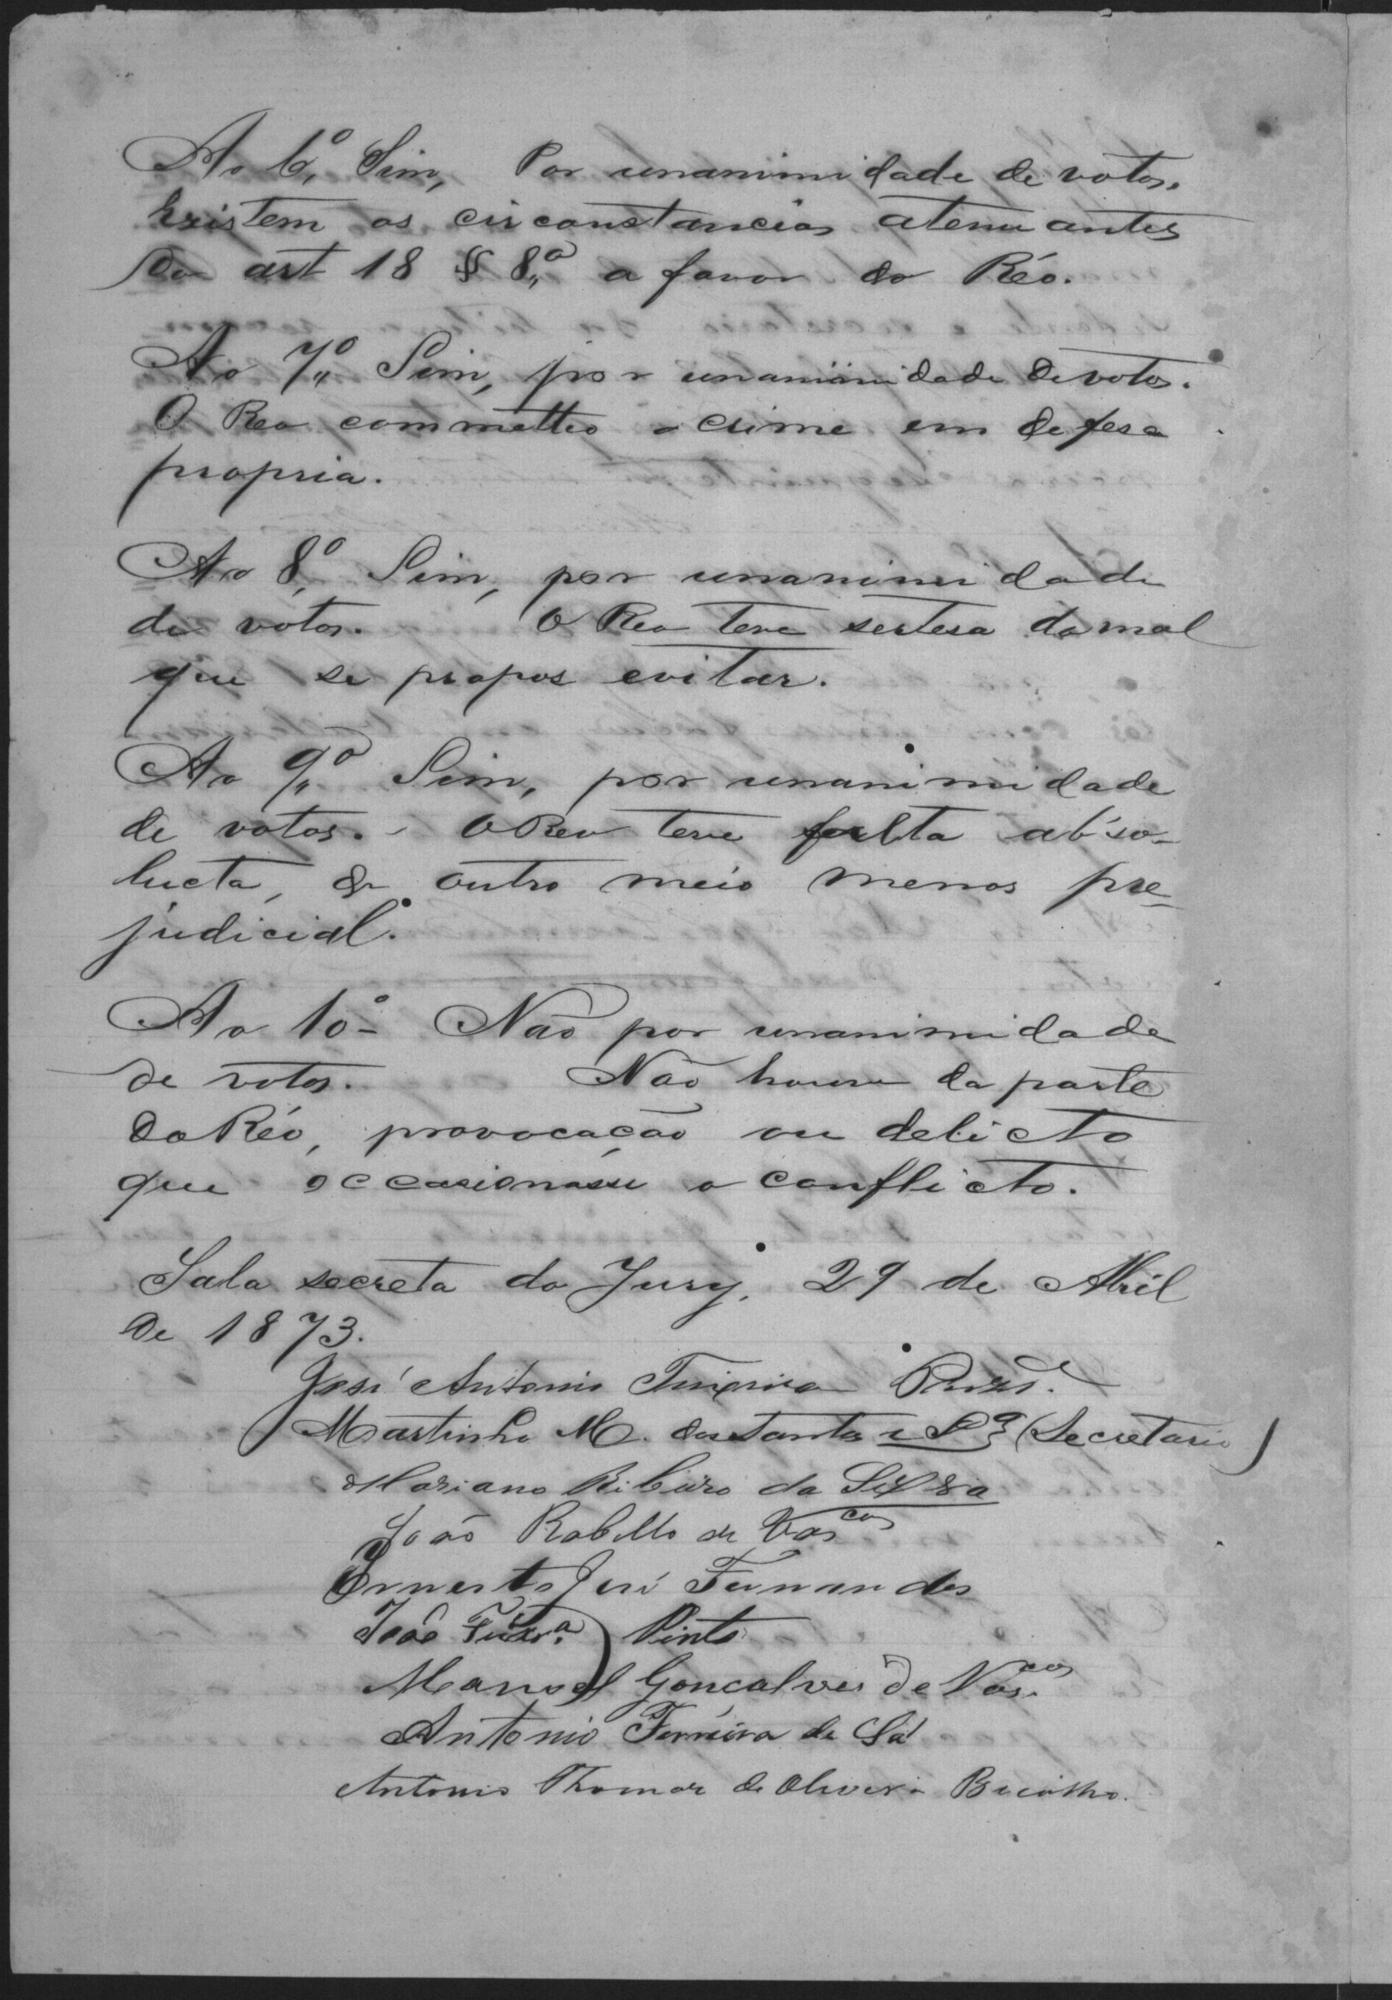 Ao 6º, Sim, Por unanimidade de votos.
Existem as circonstancias atenuantes
do art 18 § 8º a favor do Réo.
Ao 7º Sim, por unanimidade de votos.
O Reo commetteo o crime em defesa
propria.
Ao 8º, Sim, por unanimidade
de votos. O Reo teve sertesa do mal
que se propos evitar.
Ao 9º Sim, por unanimidade
de votos. - O Reo teve falta abso-
lucta, de outro meio menos pre-
judicial.
Ao 10º Não por unanimidade
de votos. Não houve da parte
do Réo, provocação ou delicto
que occasionásse o conflicto.
Sala secreta do Jury, 29 de Abril
de 1873.
José Antonio Teixeira Presid.e
Martinho M. dos Santos e Sª (Secretario)
Mariano Ribeiro da Silva
João Rabello de Vascos
Ernesto José Fernandes
João Teixrª Pinto
Manoel Gonçalves de Vascos
Antonio Ferreira de Sá
Antonio Thomas de Oliveira